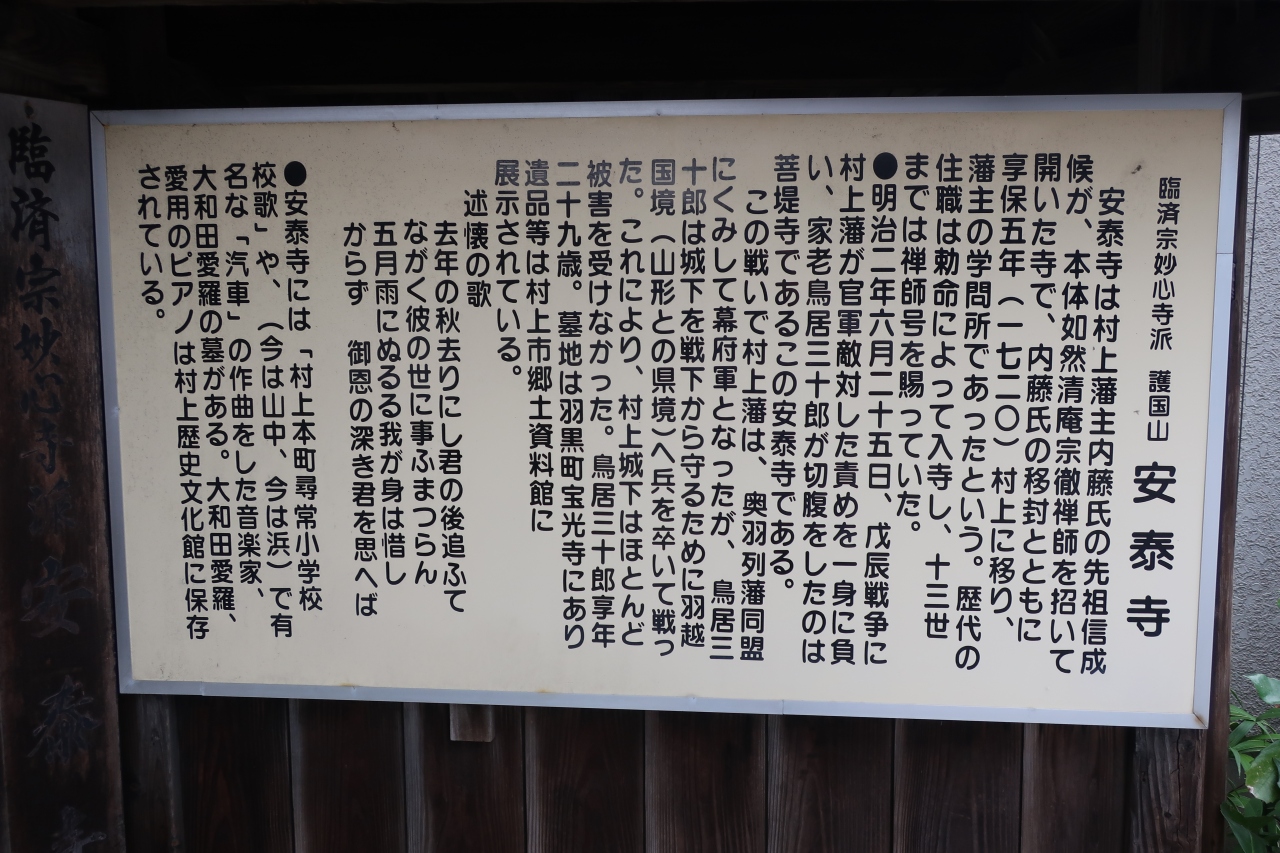 臨済宗妙心寺派 護国山 安泰寺
安泰寺は村上藩主内藤氏の先祖信成
候が、本体如然清庵宗徹禅師を招いて
開いた寺で、内藤氏の移封とともに
享保五年（一七二〇）村上に移り、
藩主の学問所であったという。歴代の
住職は勅命によって入寺し、十三世
までは禅師号を賜っていた。
●明治二年六月二十五日、戊辰戦争に
村上藩が官軍敵対した責めを一身に負
い、家老鳥居三十郎が切腹をしたのは
菩堤寺であるこの安泰寺である。
この戦いで村上藩は、奥羽列藩同盟
にくみして幕府軍となったが、鳥居三
十郎は城下を戦下から守るために羽越
国境（山形との県境）へ兵を卒いて戦っ
た。これにより、村上城下はほとんど
被害を受けなかった。鳥居三十郎享年
二十九歳。墓地は羽黒町宝光寺にあり
遺品等は村上市郷土資料館に
展示されている。
述懐の歌
去年の秋去りにし君の後追ふて
ながく彼の世に事ふまつらん
五月雨にぬるる我が身は惜し
からず 御恩の深き君を思へば
●安泰寺には「村上本町尋常小学校
校歌」や、（今は山中、今は浜）で有
名な「汽車」の作曲をした音楽家、
大和田愛羅の墓がある。大和田愛羅、
愛用のピアノは村上歴史文化館に保存
されている。
臨済宗妙心寺派安泰寺